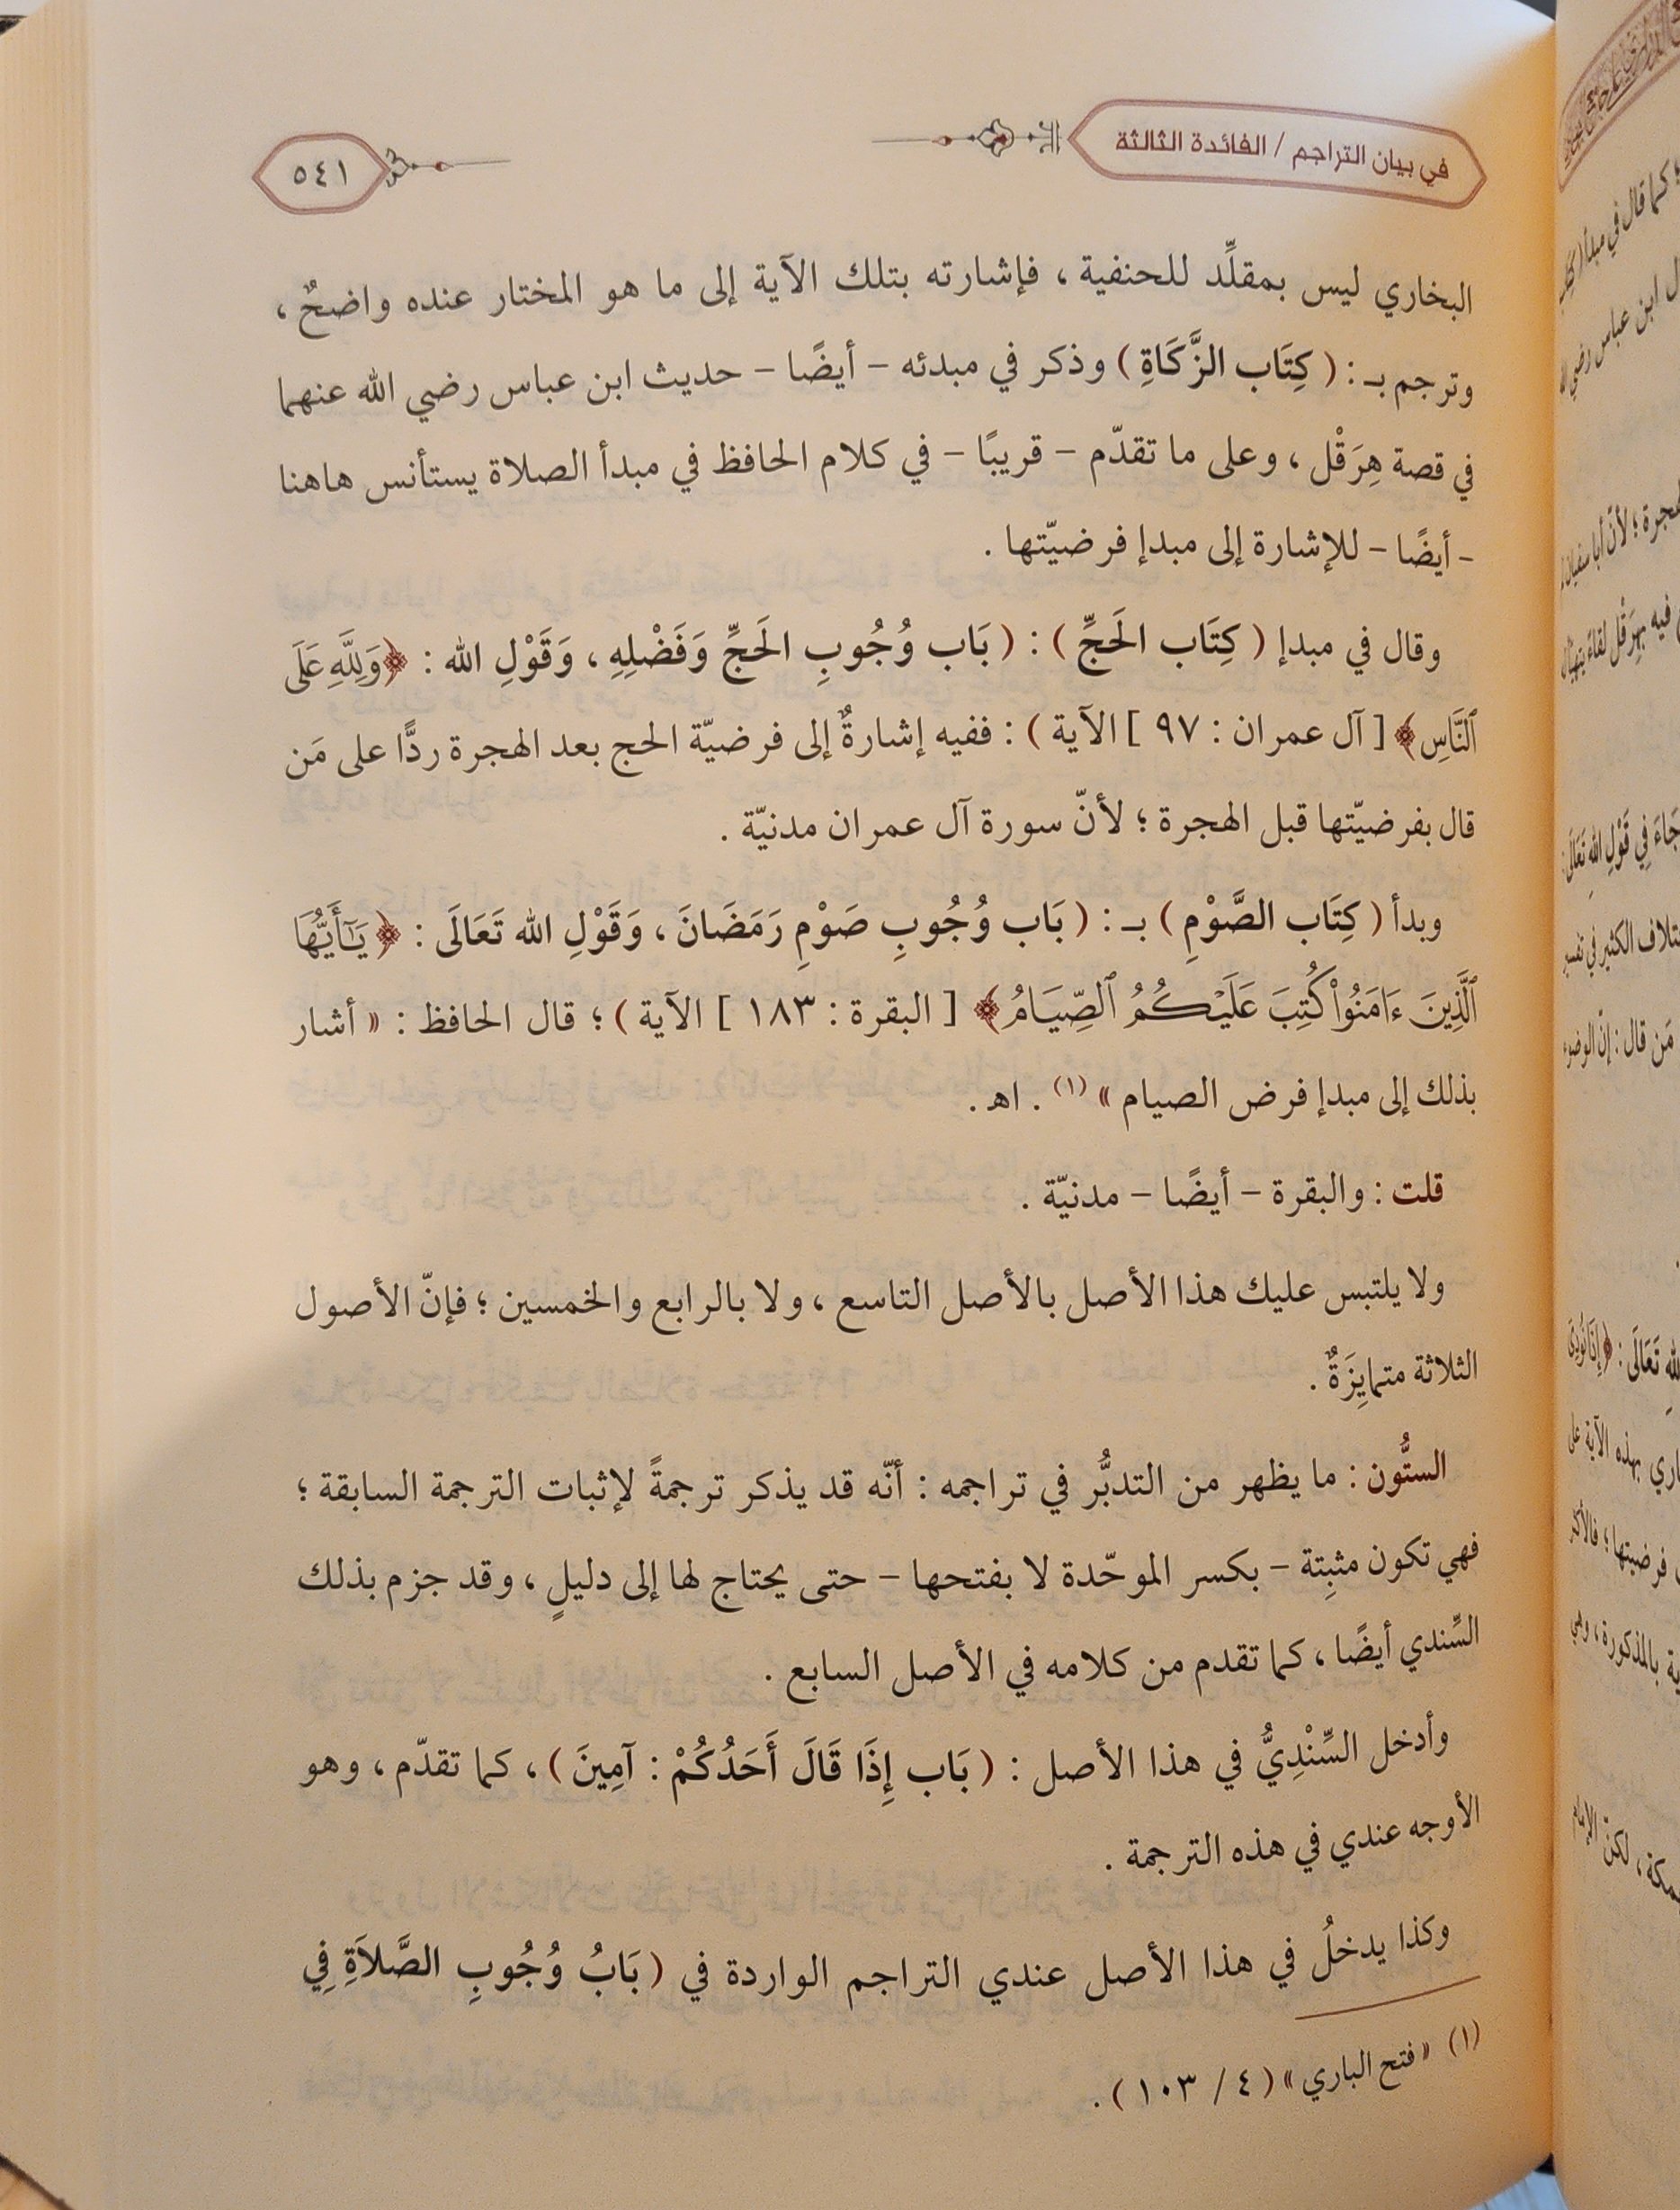 في بيان التراجم / الفائدة الثالثة
٥٤١
البخاري ليس بمقلِّد للحنفية ، فإشارته بتلك الآية إلى ما هو المختار عنده واضحٌ ،
وترجم بـ : ( كِتَاب الزَّكَاةِ ) وذكر في مبدئه – أيضًا – حديث ابن عباس رضي الله عنهما
في قصة هِرَقْل ، وعلى ما تقدّم – قريبًا – في كلام الحافظ في مبدأ الصلاة يستأنس هاهنا
– أيضًا – للإشارة إلى مبدإ فرضيّتها .
وقال في مبدإ ( كِتَاب الحَجِّ ) : ( بَاب وُجُوبِ الحَجِّ وَفَضْلِهِ ، وَقَوْلِ الله : ﴿وَلِلَّهِ عَلَى
ٱلنَّاسِ﴾ [ آل عمران : ٩٧ ] الآية ) : ففيه إشارةٌ إلى فرضيّة الحج بعد الهجرة ردًّا على مَن
قال بفرضيّتها قبل الهجرة ؛ لأنّ سورة آل عمران مدنيّة .
وبدأ ( كِتَاب الصَّوْمِ ) بـ : ( بَاب وُجُوبِ صَوْمِ رَمَضَانَ ، وَقَوْلِ الله تَعَالَى : ﴿يَٰٓأَيُّهَا
ٱلَّذِينَ ءَامَنُوا۟ كُتِبَ عَلَيْكُمُ ٱلصِّيَامُ﴾ [ البقرة : ١٨٣ ] الآية ) ؛ قال الحافظ : « أشار
بذلك إلى مبدإ فرض الصيام » (١) . اهـ .
قلت : والبقرة – أيضًا – مدنيّة .
ولا يلتبس عليك هذا الأصل بالأصل التاسع ، ولا بالرابع والخمسين ؛ فإنّ الأصول
الثلاثة متمايِزَةٌ .
الستُّون : ما يظهر من التدبُّر في تراجمه : أنّه قد يذكر ترجمةً لإثبات الترجمة السابقة ؛
فهي تكون مثبِتة – بكسر الموحّدة لا بفتحها – حتى يحتاج لها إلى دليلٍ ، وقد جزم بذلك
السِّندي أيضًا ، كما تقدم من كلامه في الأصل السابع .
وأدخل السِّنْدِيُّ في هذا الأصل : ( بَاب إِذَا قَالَ أَحَدُكُمْ : آمِينَ ) ، كما تقدّم ، وهو
الأوجه عندي في هذه الترجمة .
وكذا يدخلُ في هذا الأصل عندي التراجم الواردة في ( بَابُ وُجُوبِ الصَّلاَةِ فِي
(١) « فتح الباري » ( ٤ / ١٠٣ ) .